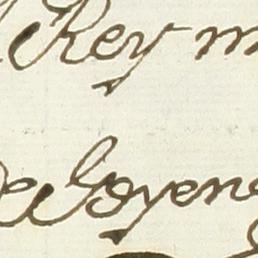 Rey m
De Goyene